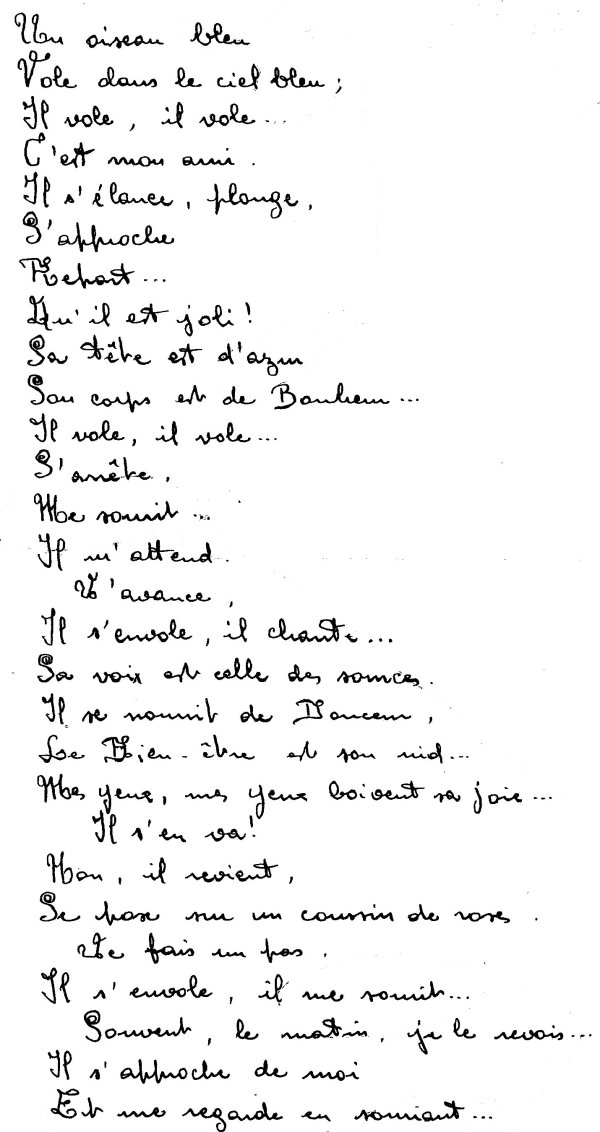 Un oiseau bleu
Vole dans le ciel bleu ;
Il vole, il vole...
C'est mon ami.
Il s'élance, plonge,
S'approche
Repart...
Qu'il est joli !
Sa tête est d'azur
Son corps est de Bonheur...
Il vole, il vole...
S'arrête,
Me sourit...
Il m'attend.
J'avance,
Il s'envole, il chante...
Sa voix est celle des sources.
Il se nourrit de Douceur,
Le Bien-être est son nid...
Mes yeux, mes yeux boivent sa joie...
Il s'en va !
Non, il revient,
Se pose sur un coussin de roses.
Je fais un pas.
Il s'envole, il me sourit...
Souvent, le matin, je le revois...
Il s'approche de moi
Et me regarde en souriant...